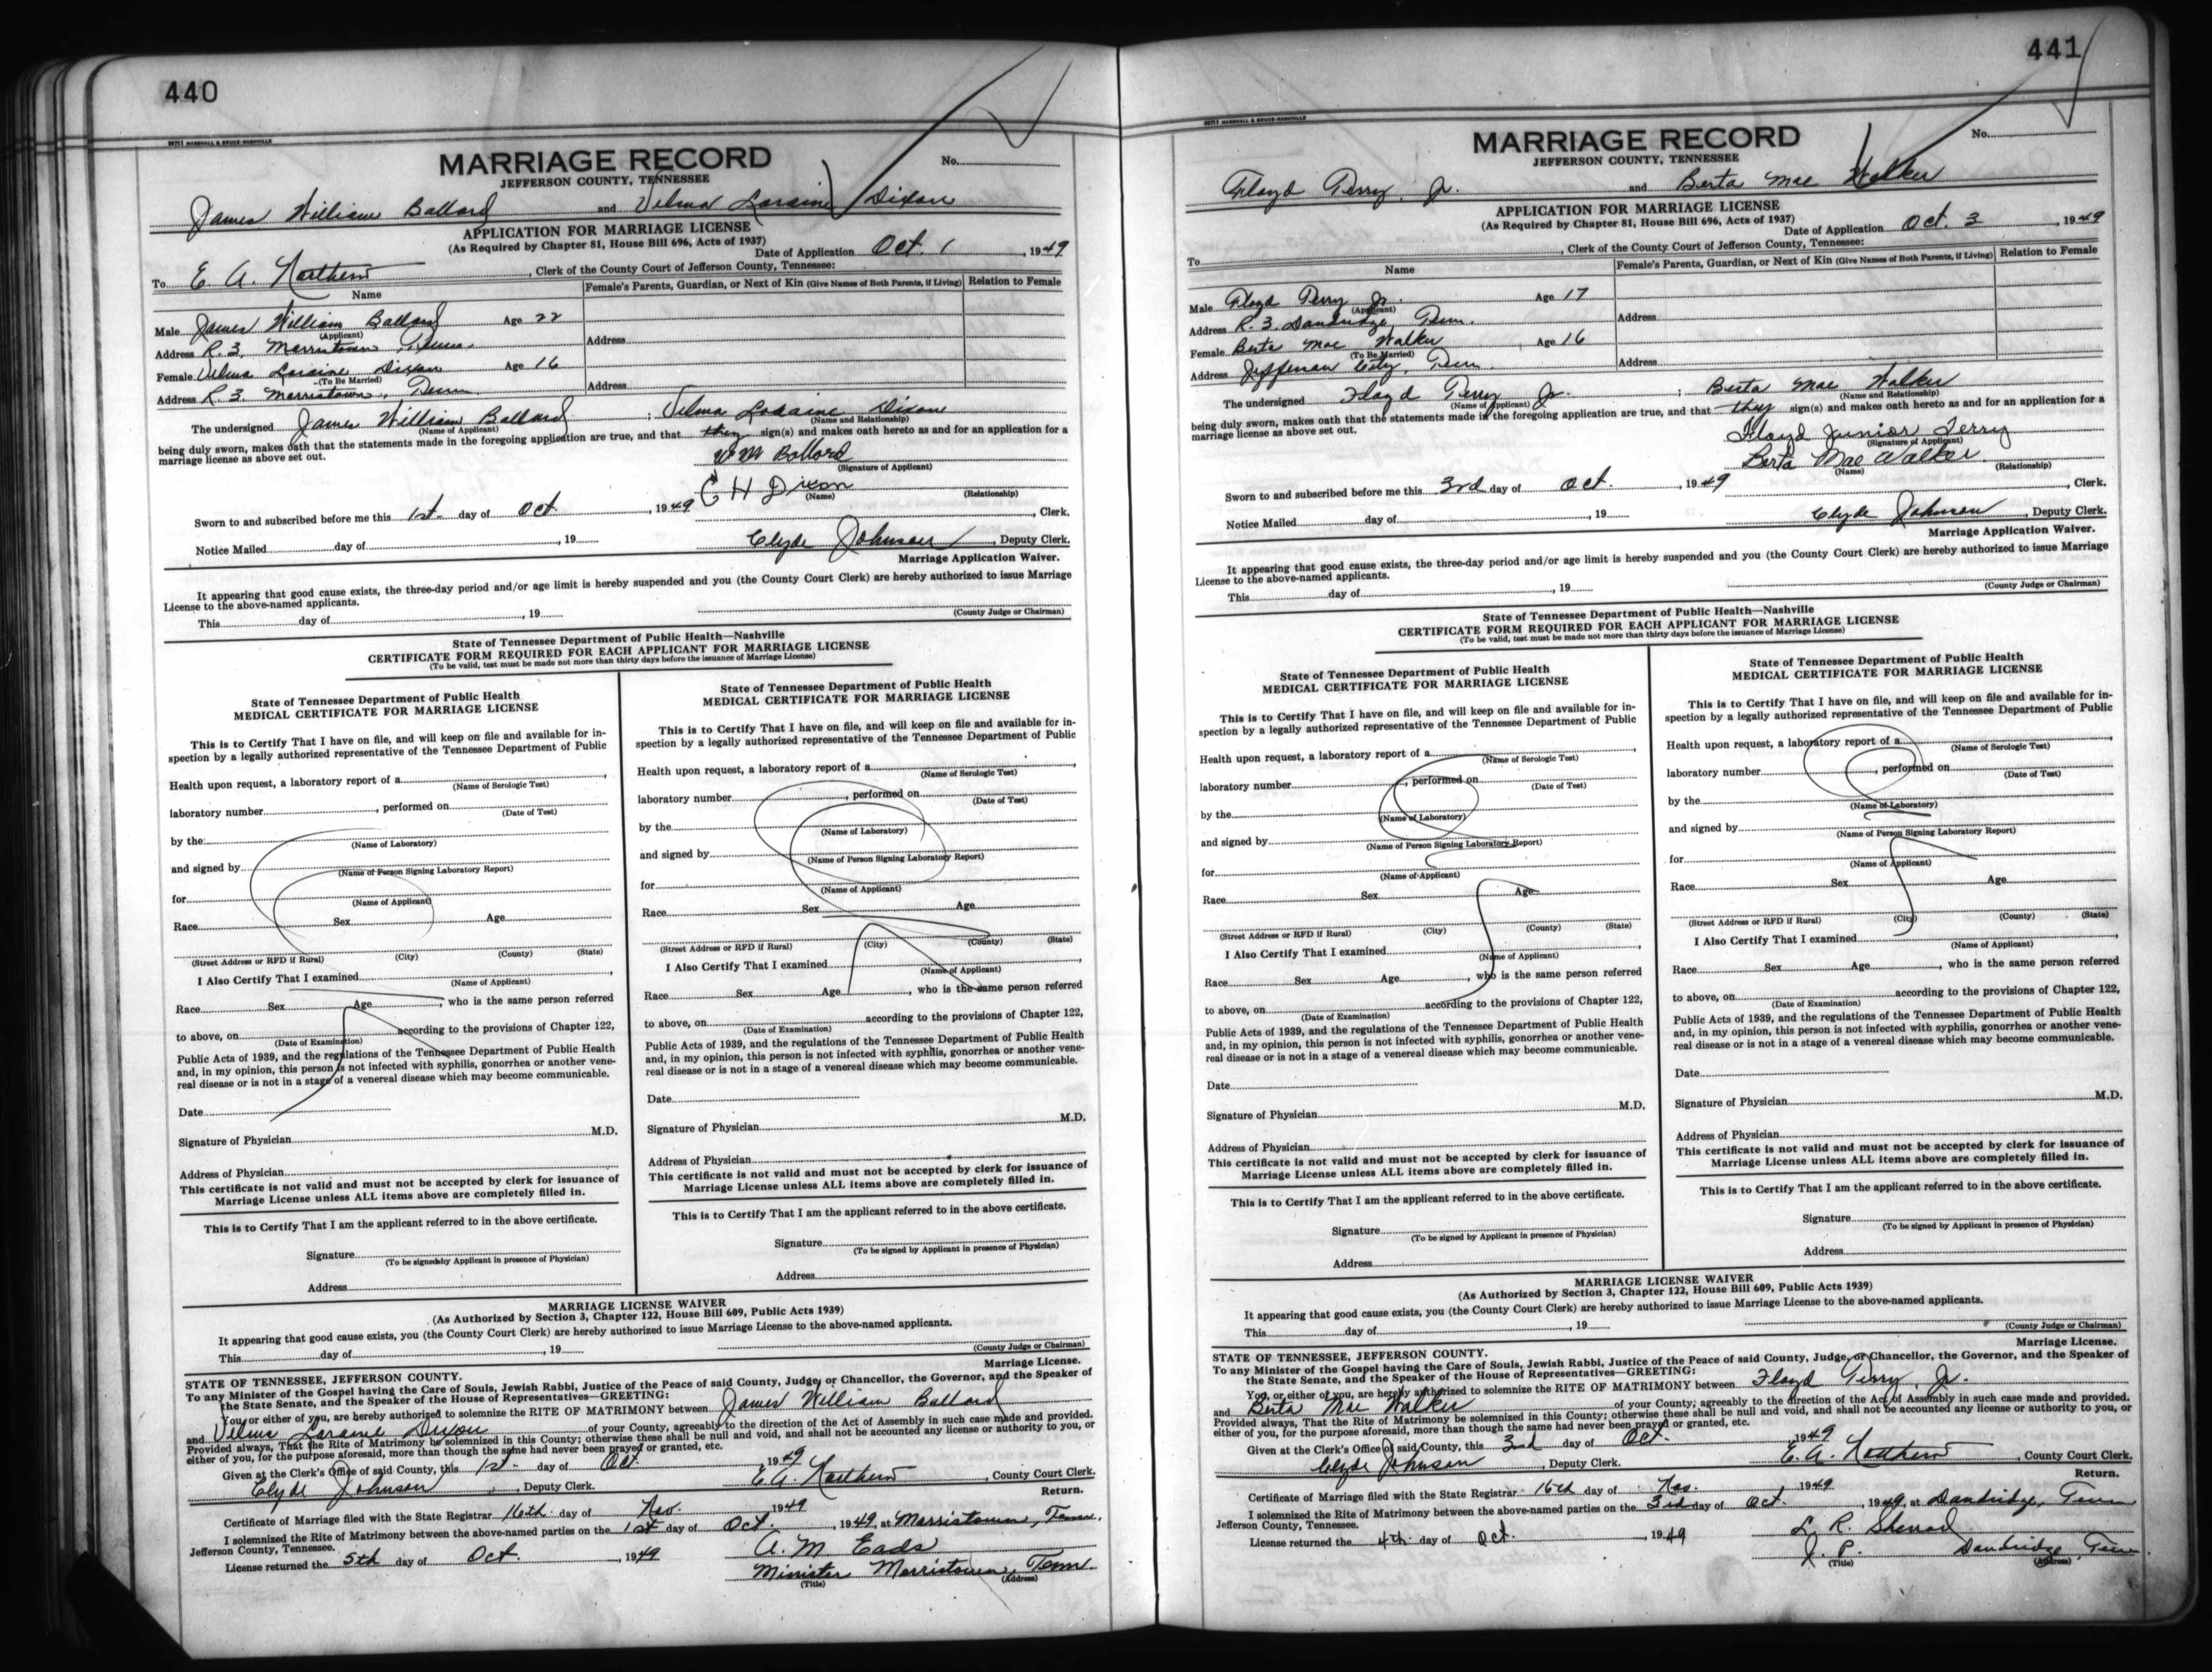 440
MARSHALL & BRUCE-NASHVILLE
MARRIAGE RECORD
No.
JEFFERSON COUNTY, TENNESSEE
James William Ballard and Velma Loraine Dixon
APPLICATION FOR MARRIAGE LICENSE
(As Required by Chapter 81, House Bill 696, Acts of 1937)
Date of Application Oct. 1, 1949
To E. A. Northern, Clerk of the County Court of Jefferson County, Tennessee:
Name
Female's Parents, Guardian, or Next of Kin (Give Names of Both Parents, if Living)
Relation to Female
Male James William Ballard Age 22
(Applicant)
Address R. 3. Morristown, Tenn.
Address
Female Velma Loraine Dixon Age 16
(To Be Married)
Address R. 3. Morristown, Tenn.
Address
The undersigned James William Ballard ; Velma Loraine Dixon
(Name of Applicant) (Name and Relationship)
being duly sworn, makes oath that the statements made in the foregoing application are true, and that they sign(s) and makes oath hereto as and for an application for a
marriage license as above set out.
Wm Ballard
(Signature of Applicant)
C H Dixon
(Name) (Relationship)
Sworn to and subscribed before me this 1st day of Oct., 1949
, Clerk.
Notice Mailed day of , 19
Clyde Johnson, Deputy Clerk.
Marriage Application Waiver.
It appearing that good cause exists, the three-day period and/or age limit is hereby suspended and you (the County Court Clerk) are hereby authorized to issue Marriage
License to the above-named applicants.
This day of , 19
(County Judge or Chairman)
State of Tennessee Department of Public Health—Nashville
CERTIFICATE FORM REQUIRED FOR EACH APPLICANT FOR MARRIAGE LICENSE
(To be valid, test must be made not more than thirty days before the issuance of Marriage License)
State of Tennessee Department of Public Health
MEDICAL CERTIFICATE FOR MARRIAGE LICENSE
This is to Certify That I have on file, and will keep on file and available for in-
spection by a legally authorized representative of the Tennessee Department of Public
Health upon request, a laboratory report of a ,
(Name of Serologic Test)
laboratory number , performed on
(Date of Test)
by the
(Name of Laboratory)
and signed by
(Name of Person Signing Laboratory Report)
for
(Name of Applicant)
Race Sex Age
(Street Address or RFD if Rural) (City) (County) (State)
I Also Certify That I examined ,
(Name of Applicant)
Race Sex Age , who is the same person referred
to above, on according to the provisions of Chapter 122,
(Date of Examination)
Public Acts of 1939, and the regulations of the Tennessee Department of Public Health
and, in my opinion, this person is not infected with syphilis, gonorrhea or another vene-
real disease or is not in a stage of a venereal disease which may become communicable.
Date
Signature of Physician M.D.
Address of Physician
This certificate is not valid and must not be accepted by clerk for issuance of
Marriage License unless ALL items above are completely filled in.
This is to Certify That I am the applicant referred to in the above certificate.
Signature
(To be signed by Applicant in presence of Physician)
Address
State of Tennessee Department of Public Health
MEDICAL CERTIFICATE FOR MARRIAGE LICENSE
This is to Certify That I have on file, and will keep on file and available for in-
spection by a legally authorized representative of the Tennessee Department of Public
Health upon request, a laboratory report of a ,
(Name of Serologic Test)
laboratory number , performed on
(Date of Test)
by the
(Name of Laboratory)
and signed by
(Name of Person Signing Laboratory Report)
for
(Name of Applicant)
Race Sex Age
(Street Address or RFD if Rural) (City) (County) (State)
I Also Certify That I examined ,
(Name of Applicant)
Race Sex Age , who is the same person referred
to above, on according to the provisions of Chapter 122,
(Date of Examination)
Public Acts of 1939, and the regulations of the Tennessee Department of Public Health
and, in my opinion, this person is not infected with syphilis, gonorrhea or another vene-
real disease or is not in a stage of a venereal disease which may become communicable.
Date
Signature of Physician M.D.
Address of Physician
This certificate is not valid and must not be accepted by clerk for issuance of
Marriage License unless ALL items above are completely filled in.
This is to Certify That I am the applicant referred to in the above certificate.
Signature
(To be signed by Applicant in presence of Physician)
Address
MARRIAGE LICENSE WAIVER
(As Authorized by Section 3, Chapter 122, House Bill 609, Public Acts 1939)
It appearing that good cause exists, you (the County Court Clerk) are hereby authorized to issue Marriage License to the above-named applicants.
This day of , 19
(County Judge or Chairman)
Marriage License.
STATE OF TENNESSEE, JEFFERSON COUNTY.
To any Minister of the Gospel having the Care of Souls, Jewish Rabbi, Justice of the Peace of said County, Judge or Chancellor, the Governor, and the Speaker of
the State Senate, and the Speaker of the House of Representatives—GREETING:
You, or either of you, are hereby authorized to solemnize the RITE OF MATRIMONY between James William Ballard
and Velma Loraine Dixon of your County, agreeably to the direction of the Act of Assembly in such case made and provided.
Provided always, That the Rite of Matrimony be solemnized in this County; otherwise these shall be null and void, and shall not be accounted any license or authority to you, or
either of you, for the purpose aforesaid, more than though the same had never been prayed or granted, etc.
Given at the Clerk's Office of said County, this 1st day of Oct. 1949
Clyde Johnson, Deputy Clerk. E. A. Northern, County Court Clerk.
Return.
Certificate of Marriage filed with the State Registrar 16th day of Nov. 1949
I solemnized the Rite of Matrimony between the above-named parties on the 1st day of Oct., 1949, at Morristown, Tenn.
Jefferson County, Tennessee.
License returned the 5th day of Oct., 1949
A. M. Eads
Minister Morristown, Tenn.
(Title) (Address)
441
MARSHALL & BRUCE-NASHVILLE
MARRIAGE RECORD
No.
JEFFERSON COUNTY, TENNESSEE
Floyd Terry, Jr. and Berta Mae Walker
APPLICATION FOR MARRIAGE LICENSE
(As Required by Chapter 81, House Bill 696, Acts of 1937)
Date of Application Oct. 3, 1949
To , Clerk of the County Court of Jefferson County, Tennessee:
Name
Female's Parents, Guardian, or Next of Kin (Give Names of Both Parents, if Living)
Relation to Female
Male Floyd Terry Jr. Age 17
(Applicant)
Address R. 3. Dandridge, Tenn.
Address
Female Berta Mae Walker Age 16
(To Be Married)
Address Jefferson City, Tenn.
Address
The undersigned Floyd Terry Jr. ; Berta Mae Walker
(Name of Applicant) (Name and Relationship)
being duly sworn, makes oath that the statements made in the foregoing application are true, and that they sign(s) and makes oath hereto as and for an application for a
marriage license as above set out.
Floyd Junior Terry
(Signature of Applicant)
Berta Mae Walker
(Name) (Relationship)
Sworn to and subscribed before me this 3rd day of Oct., 1949
, Clerk.
Notice Mailed day of , 19
Clyde Johnson, Deputy Clerk.
Marriage Application Waiver.
It appearing that good cause exists, the three-day period and/or age limit is hereby suspended and you (the County Court Clerk) are hereby authorized to issue Marriage
License to the above-named applicants.
This day of , 19
(County Judge or Chairman)
State of Tennessee Department of Public Health—Nashville
CERTIFICATE FORM REQUIRED FOR EACH APPLICANT FOR MARRIAGE LICENSE
(To be valid, test must be made not more than thirty days before the issuance of Marriage License)
State of Tennessee Department of Public Health
MEDICAL CERTIFICATE FOR MARRIAGE LICENSE
This is to Certify That I have on file, and will keep on file and available for in-
spection by a legally authorized representative of the Tennessee Department of Public
Health upon request, a laboratory report of a ,
(Name of Serologic Test)
laboratory number , performed on
(Date of Test)
by the
(Name of Laboratory)
and signed by
(Name of Person Signing Laboratory Report)
for
(Name of Applicant)
Race Sex Age
(Street Address or RFD if Rural) (City) (County) (State)
I Also Certify That I examined ,
(Name of Applicant)
Race Sex Age , who is the same person referred
to above, on according to the provisions of Chapter 122,
(Date of Examination)
Public Acts of 1939, and the regulations of the Tennessee Department of Public Health
and, in my opinion, this person is not infected with syphilis, gonorrhea or another vene-
real disease or is not in a stage of a venereal disease which may become communicable.
Date
Signature of Physician M.D.
Address of Physician
This certificate is not valid and must not be accepted by clerk for issuance of
Marriage License unless ALL items above are completely filled in.
This is to Certify That I am the applicant referred to in the above certificate.
Signature
(To be signed by Applicant in presence of Physician)
Address
State of Tennessee Department of Public Health
MEDICAL CERTIFICATE FOR MARRIAGE LICENSE
This is to Certify That I have on file, and will keep on file and available for in-
spection by a legally authorized representative of the Tennessee Department of Public
Health upon request, a laboratory report of a ,
(Name of Serologic Test)
laboratory number , performed on
(Date of Test)
by the
(Name of Laboratory)
and signed by
(Name of Person Signing Laboratory Report)
for
(Name of Applicant)
Race Sex Age
(Street Address or RFD if Rural) (City) (County) (State)
I Also Certify That I examined ,
(Name of Applicant)
Race Sex Age , who is the same person referred
to above, on according to the provisions of Chapter 122,
(Date of Examination)
Public Acts of 1939, and the regulations of the Tennessee Department of Public Health
and, in my opinion, this person is not infected with syphilis, gonorrhea or another vene-
real disease or is not in a stage of a venereal disease which may become communicable.
Date
Signature of Physician M.D.
Address of Physician
This certificate is not valid and must not be accepted by clerk for issuance of
Marriage License unless ALL items above are completely filled in.
This is to Certify That I am the applicant referred to in the above certificate.
Signature
(To be signed by Applicant in presence of Physician)
Address
MARRIAGE LICENSE WAIVER
(As Authorized by Section 3, Chapter 122, House Bill 609, Public Acts 1939)
It appearing that good cause exists, you (the County Court Clerk) are hereby authorized to issue Marriage License to the above-named applicants.
This day of , 19
(County Judge or Chairman)
Marriage License.
STATE OF TENNESSEE, JEFFERSON COUNTY.
To any Minister of the Gospel having the Care of Souls, Jewish Rabbi, Justice of the Peace of said County, Judge, or Chancellor, the Governor, and the Speaker of
the State Senate, and the Speaker of the House of Representatives—GREETING:
You, or either of you, are hereby authorized to solemnize the RITE OF MATRIMONY between Floyd Terry, Jr.
and Berta Mae Walker of your County; agreeably to the direction of the Act of Assembly in such case made and provided.
Provided always, That the Rite of Matrimony be solemnized in this County; otherwise these shall be null and void, and shall not be accounted any license or authority to you, or
either of you, for the purpose aforesaid, more than though the same had never been prayed or granted, etc.
Given at the Clerk's Office of said County, this 3rd day of Oct., 1949
Clyde Johnson, Deputy Clerk. E. A. Northern, County Court Clerk.
Return.
Certificate of Marriage filed with the State Registrar 16th day of Nov. 1949
I solemnized the Rite of Matrimony between the above-named parties on the 3rd day of Oct., 1949, at Dandridge, Tenn
Jefferson County, Tennessee.
License returned the 4th day of Oct., 1949
L. R. Sherrod
J. P. Dandridge, Tenn.
(Title) (Address)